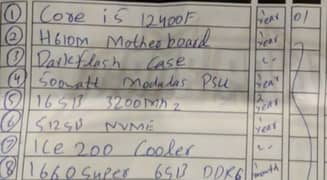 1 Core i5 12400F year 01
2 H610m Motherboard year
3 Darkflash Case
4 500watt Modulas PSU year
5 16GB 3200mhz year
6 512GB NVME year
7 ICe 200 Cooler
8 1660 Super 6GB DDR6 month